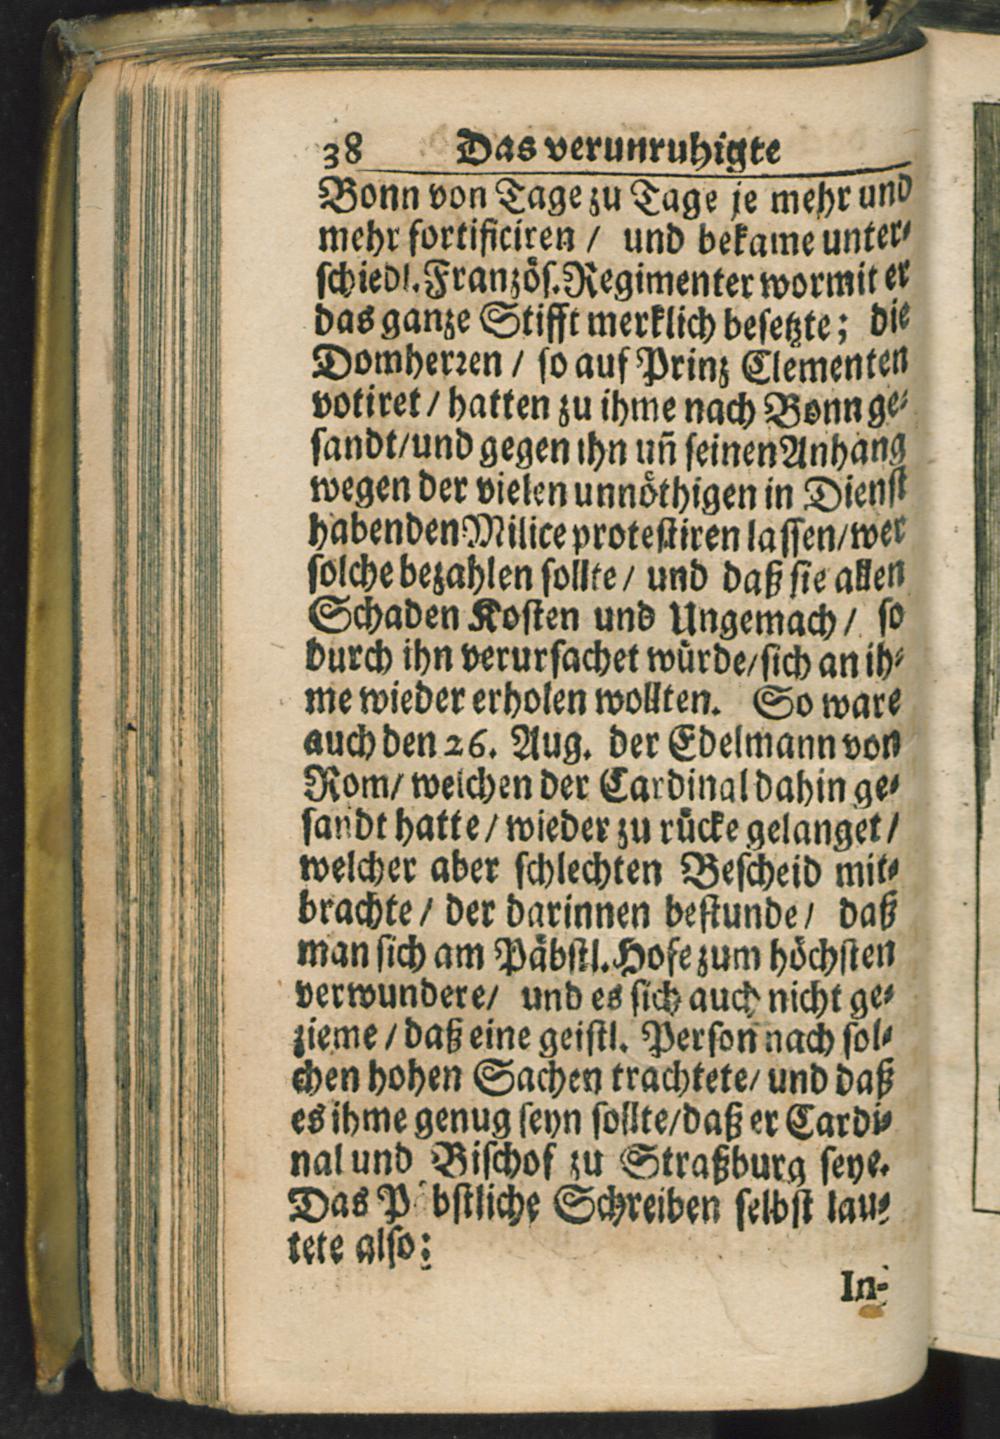 38 Das verunruhigte
Bonn von Tage zu Tage je mehr und
mehr fortificiren / und bekame unter-
schiedl. Französ. Regimenter wormit er
das ganze Stifft merklich besetzte; die
Domherren / so auf Prinz Clementen
votiret / hatten zu ihme nach Bonn ge-
sandt/und gegen ihn uñ seinen Anhang
wegen der vielen unnöthigen in Dienst
habenden Milice protestiren lassen/wer
solche bezahlen sollte / und daß sie allen
Schaden Kosten und Ungemach / so
durch ihn verursachet würde/sich an ih-
me wieder erholen wollten. So ware
auch den 26. Aug. der Edelmann von
Rom/ welchen der Cardinal dahin ge-
sandt hatte / wieder zu rücke gelanget /
welcher aber schlechten Bescheid mit-
brachte / der darinnen bestunde / daß
man sich am Päbstl. Hofe zum höchsten
verwundere/ und es sich auch nicht ge-
zieme / daß eine geistl. Person nach sol-
chen hohen Sachen trachtete/ und daß
es ihme genug seyn sollte/daß er Cardi-
nal und Bischof zu Straßburg seye.
Das Päbstliche Schreiben selbst lau-
tete also:
In-